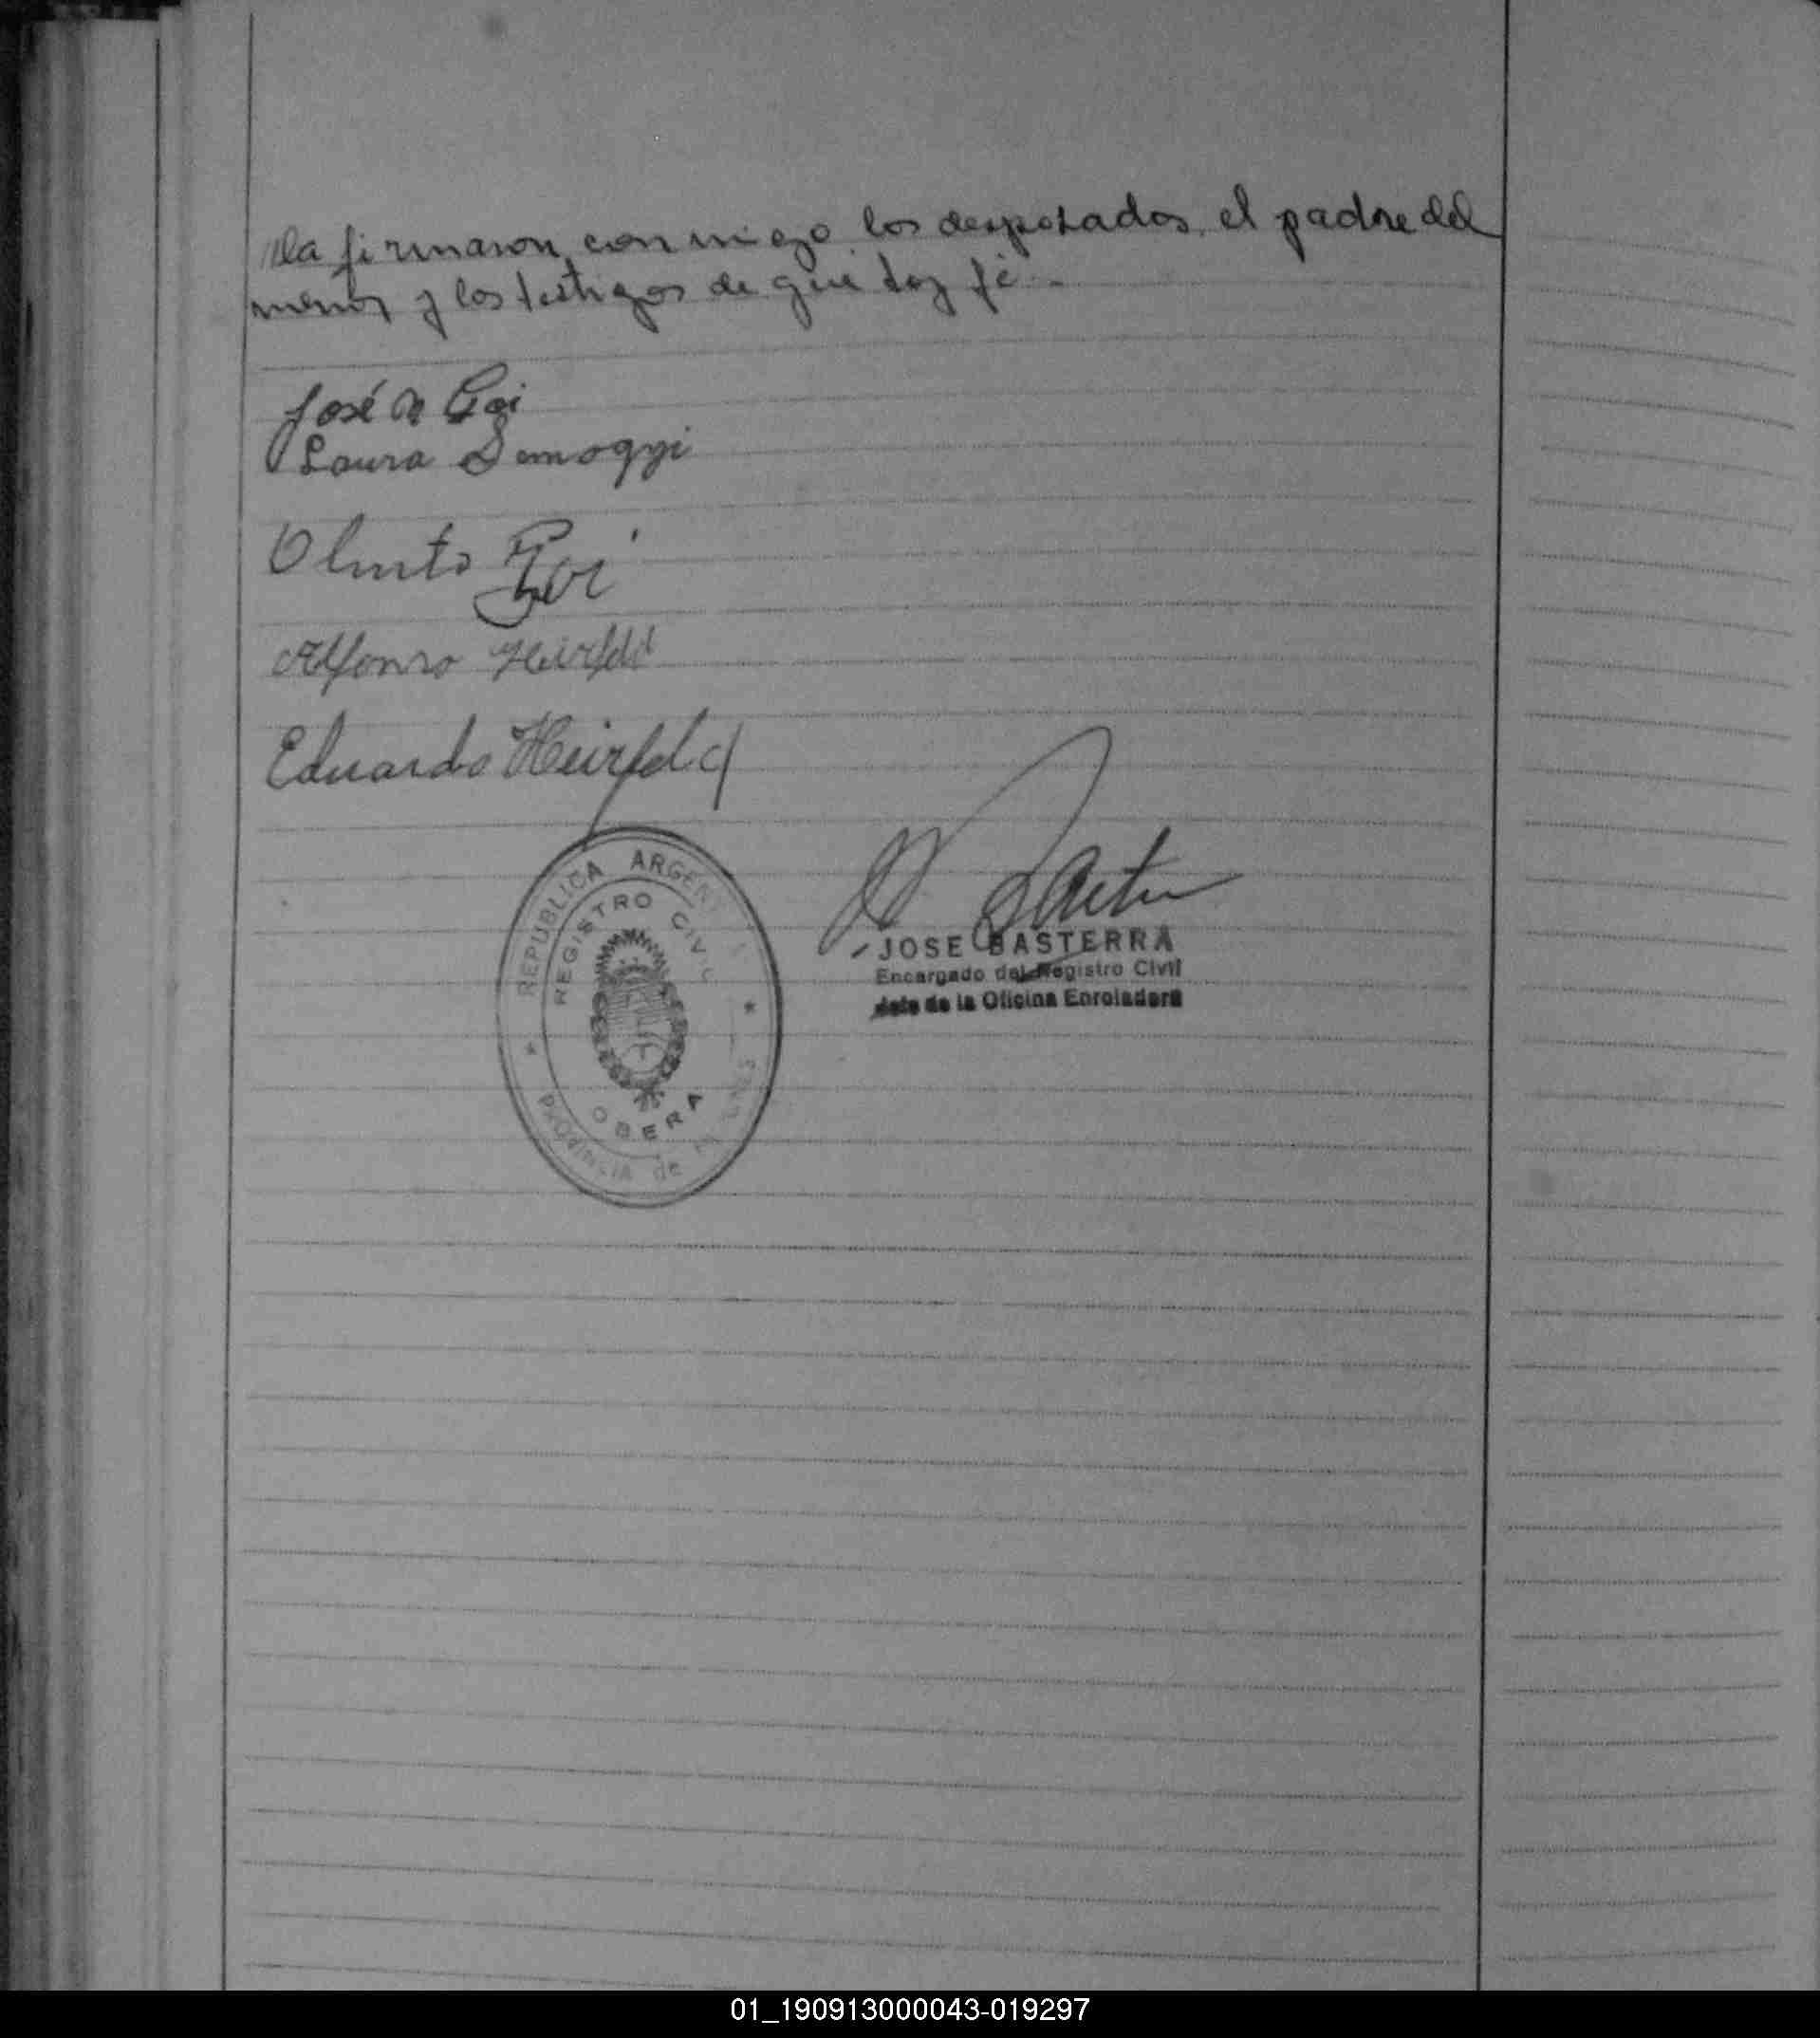 //la firmaron conmigo los desposados, el padre del
menor y los testigos de que doy fé -
José A Goi
Laura Somogyi
Olinto Goi
Alfonso Heirfeld
Eduardo Heirfeld
REPUBLICA ARGENTINA
REGISTRO CIVIL
OBERA
PROVINCIA de MISIONES
JOSE BASTERRA
Encargado del Registro Civil
Jefe de la Oficina Enroladora
01_190913000043-019297